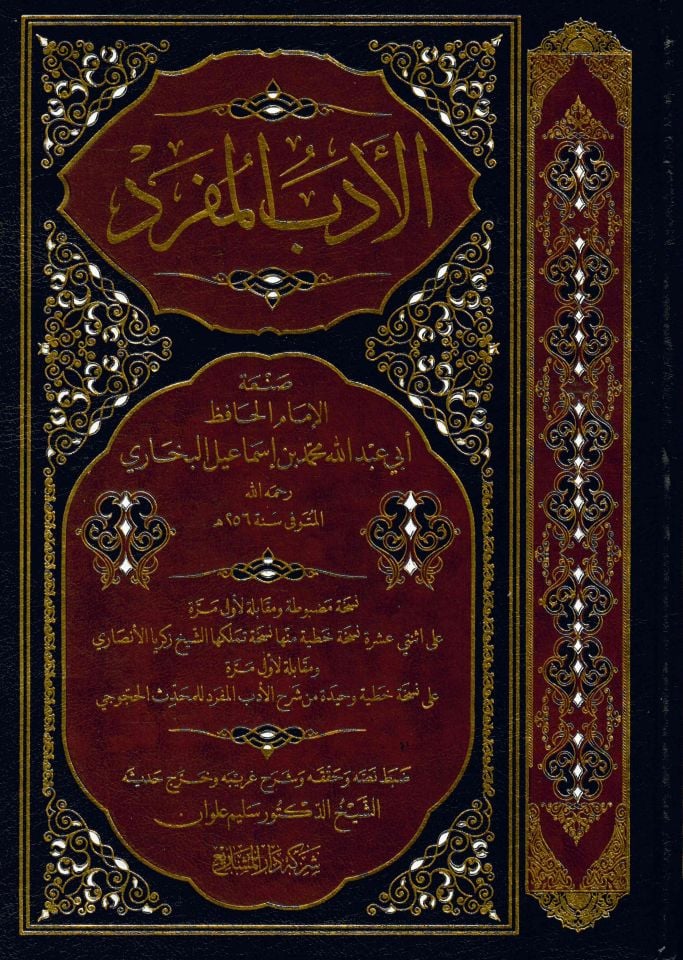 الأدب المفرد
صنعة
الإمام الحافظ
أبي عبد الله محمد بن إسماعيل البخاري
رحمه الله
المتوفى سنة ٢٥٦ هـ
نسخة مضبوطة ومقابلة لأول مرة
على اثنتي عشرة نسخة خطية منها نسخة تملكها الشيخ زكريا الأنصاري
ومقابلة لأول مرة
على نسخة خطية وحيدة من شرح الأدب المفرد للمحدث الحجوجي
ضبط نصه وحققه وشرح غريبه وخرج حديثه
الشيخ الدكتور سليم علوان
شركة دار المشاريع